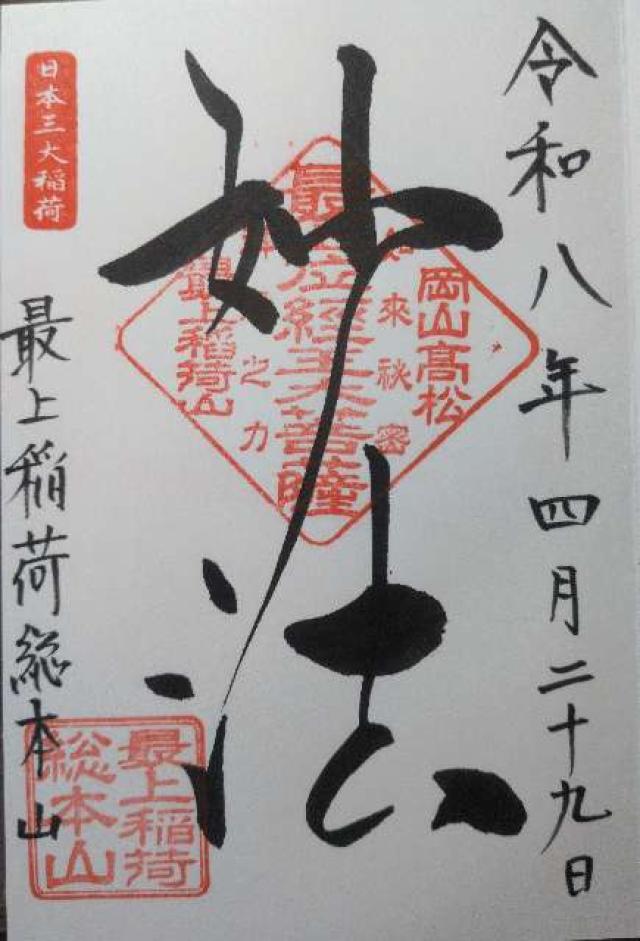 令和八年四月二十九日
妙法
岡山高松
如来秘密
最上位経王大菩薩
神之力
最上稲荷山
日本三大稲荷
最上稲荷総本山
最上稲荷
総本山